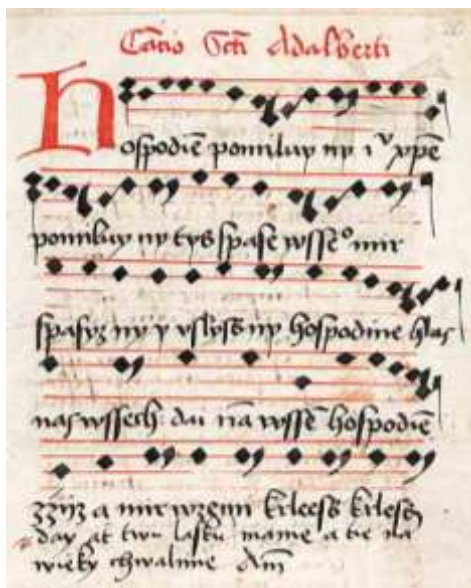 Cātio Scti Adalberti
Hospodiē pomiluy ny iᵛ xpē
pomiluy ny tys spase wsseᵒ mir
spasyz ny y vslyss ny hospodine hlas
nas wssech dai nā wssē hospodiē
zzijz a mir wzemi krleess krless
day at twu lasku mame a tie na
wieky chwalime Am̄